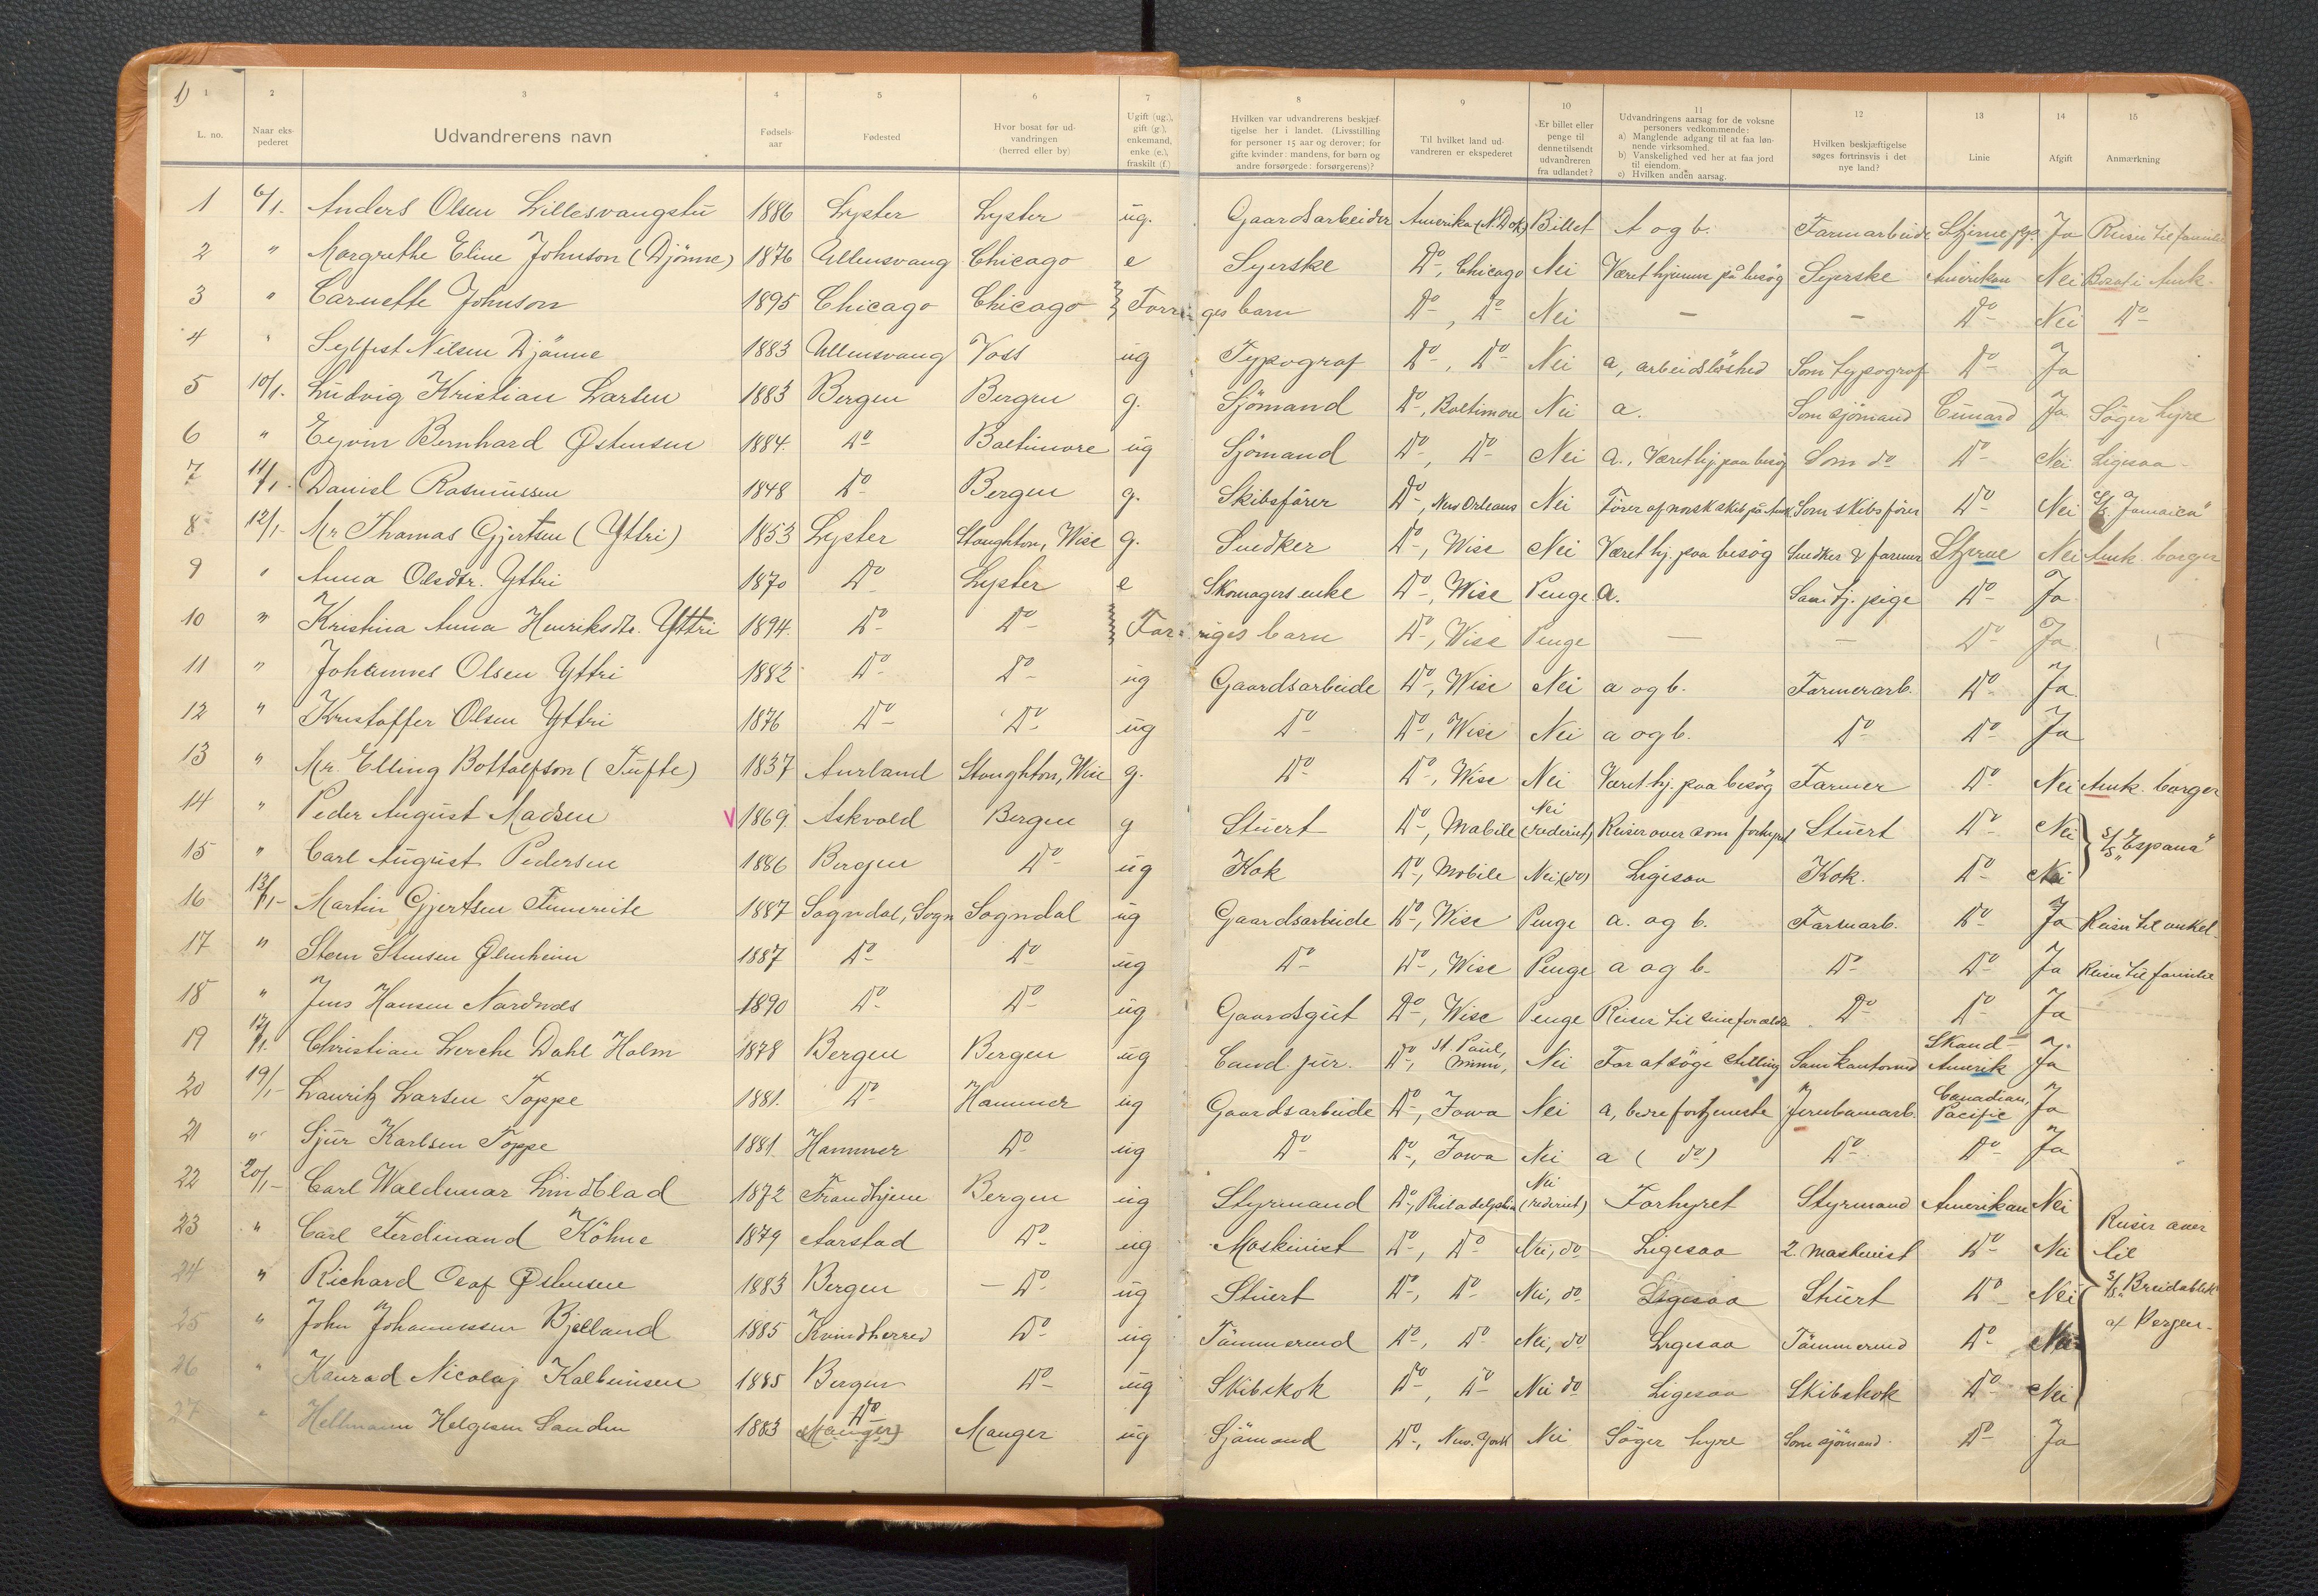 1)
1 2 3 4 5 6 7 8 9 10 11 12 13 14 15
L. no. | Naar eks-pederet | Udvandrerens navn | Fødsels-aar | Fødested | Hvor bosat før ud-vandringen (herred eller by) | Ugift (ug.), gift (g.), enkemand, enke (e.), fraskilt (f.) | Hvilken var udvandrerens beskjæf-tigelse her i landet. (Livsstilling for personer 15 aar og derover; for gifte kvinder: mandens, for børn og andre forsørgede: forsørgerens)? | Til hvilket land ud-vandreren er ekspederet | Er billet eller penge til denne tilsendt udvandreren fra udlandet? | Udvandringens aarsag for de voksne personers vedkommende: a) Manglende adgang til at faa løn-nende virksomhed. b) Vanskelighed ved her at faa jord til eiendom. c) Hvilken anden aarsag. | Hvilken beskjæftigelse søges fortrinsvis i det nye land? | Linie | Afgift | Anmærkning
1 | 6/1- | Anders Olsen Lillesvangstu | 1886 | Lyster | Lyster | ug. | Gaardsarbeider | Amerika (N.Dok) | Billet | A og b. | Farmarbeide | Stjerne | Ja | Reiser til familie
2 | " | Margrethe Eline Johnson (Djönne) | 1876 | Ullensvang | Chicago | e | Syerske | Do, Chicago | Nei | Været hjemme på besög | Syerske | Amerikan | Nei | Bosat i Amk.
3 | " | Carnette Johnson | 1895 | Chicago | Chicago | Forriges barn | Do, Do | Nei | — | — | Do | Nei | Do
4 | " | Sylfest Nilsen Djönne | 1883 | Ullensvang | Voss | ug | Typograf | Do, Do | Nei | a, arbeidslöshed | Som typograf | Do | Ja
5 | 10/1- | Ludvig Kristian Larsen | 1883 | Bergen | Bergen | g. | Sjömand | Do, Baltimore | Nei | a. | Som sjömand | Cunard | Ja | Söger hyre
6 | " | Eyvin Bernhard Østensen | 1884. | Do | Baltimore | ug | Sjömand | Do, Do | Nei | a., Været hj. paa besög | Som do | Do | Nei | Ligesaa
7 | 11/1- | Daniel Rasmussen | 1848 | Do | Bergen | g. | Skibsförer | Do, New Orleans | Nei | Förer af norsk skib på Amk | Som skibsförer | Do | Nei | S/S "Jamaica"
8 | 12/1- | Mr Thomas Gjertsen (Yttri) | 1853 | Lyster | Stoughton, Wisc | g. | Snedker | Do, Wisc | Nei | Været hj. paa besög | Snedker & farmer | Stjerne | Nei | Amk. borger
9 | " | Anna Olsdtr. Yttri | 1870 | Do | Lyster | e | Skomagers enke | Do, Wisc | Penge | a. | Som tj. pige | Do | Ja
10 | " | Kristina Anna Henriksdtr. Yttri | 1894. | Do | Do | Forriges barn | Do, Wisc | Penge | — | — | Do | Ja
11 | " | Johannes Olsen Yttri | 1882 | Do | Do | ug | Gaardsarbeide | Do, Wisc | Nei | a og b. | Farmerarb. | Do | Ja
12 | " | Kristoffer Olsen Yttri | 1876 | Do | Do | ug | Do | Do, Wisc | Nei | a og b. | Do | Do | Ja
13 | " | Mr. Elling Bottolfson (Tufte) | 1837 | Aurland | Stoughton, Wisc | g. | Do | Do, Wisc | Nei | Været hj. paa besög | Farmer | Do | Nei | Amk. borger
14 | " | Peder August Madsen | V 1869. | Askvold | Bergen | g | Stuert | Do, Mobile | Nei (rederiet) | Reiser over som forhyret | Stuert | Do | Nei | S/S "Espana"
15 | " | Carl August Pedersen | 1886 | Bergen | Do | ug | Kok | Do, Mobile | Nei (do) | Ligesaa | Kok. | Do | Nei
16 | 13/1- | Martin Gjertsen Fimreite | 1887 | Sogndal, Sogn | Sogndal | ug | Gaardsarbeide | Do, Wisc | Penge | a. og b. | Farmarb. | Do | Ja | Reiser til onkel
17 | " | Sten Stensen Ølmheim | 1887 | Do | Do | ug | Do | Do, Wisc | Penge | a og b. | Do | Do | Ja | Reiser til familie
18 | " | Jens Hansen Nordnæs | 1890 | Do | Do | ug | Gaardsgut | Do, Wisc | Penge | Reiser til sine forældre | Do | Do | Ja
19 | 17/1. | Christian Lerche Dahl Holm | 1878 | Bergen | Bergen | ug | Cand. jur. | Do, St. Paul, Minn, | Nei | For at söge stilling | Som kontormd | Skand-Amerik | Ja
20 | 19/1- | Lauritz Larsen Toppe | 1881. | Do | Hammer | ug | Gaardsarbeide | Do, Iowa | Nei | a, bedre fortjeneste | Jernbanearb. | Canadian Pacific | Ja
21 | " | Sjur Karlsen Toppe | 1881 | Hammer | Do | ug | Do | Do, Iowa | Nei | a (do) | Do | Do | Ja
22 | 20/1- | Carl Waldemar Lindblad | 1872 | Trondhjem | Bergen | ug | Styrmand | Do, Philadelphia | Nei (rederiet) | Forhyret | Styrmand | Amerikan | Nei | Reiser over til S/S "Breidablik" af Bergen
23 | " | Carl Ferdinand Köhne | 1879 | Aarstad | Do | ug | Maskinist | Do, Do | Nei, do | Ligesaa | 2. maskinist | Do | Nei
24 | " | Richard Olaf Østensen | 1883 | Bergen | Do | ug | Stuert | Do, Do | Nei, do | Ligesaa | Stuert | Do | Nei
25 | " | John Johannessen Bjelland | 1885 | Kvindherred | Do | ug | Tömmermd | Do, Do | Nei, do | Ligesaa | Tömmermd | Do | Nei
26 | " | Konrad Nicolaj Kolbeinsen | 1885 | Bergen | Do | ug | Skibskok | Do, Do | Nei do | Ligesaa | Skibskok | Do | Nei
27 | " | Hellmann Helgesen Sanden | 1883 | Do (Manger) | Manger | ug | Sjömand | Do, New. York | Nei | Söger hyre | Som sjömand. | Do | Ja